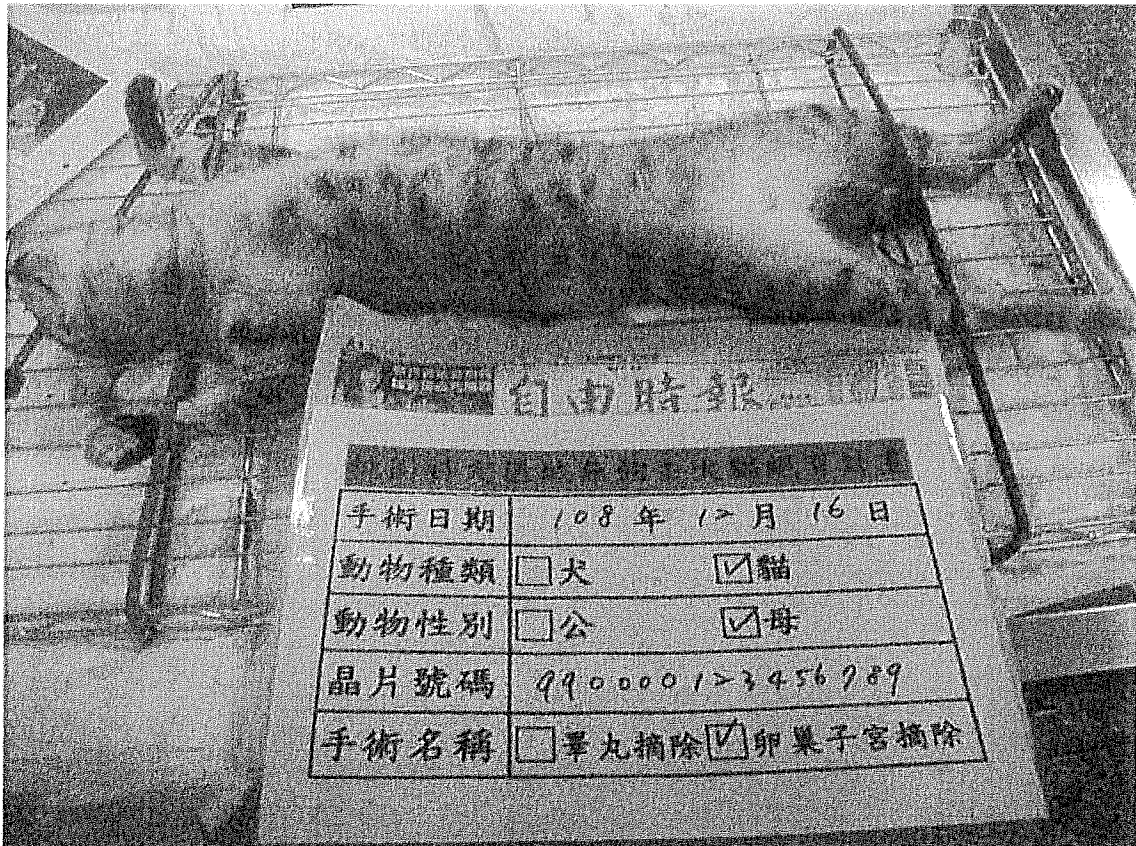 自由時報
手術日期 108 年 12 月 16 日
動物種類 □犬 ☑貓
動物性別 □公 ☑母
晶片號碼 990000123456789
手術名稱 □睪丸摘除 ☑卵巢子宮摘除